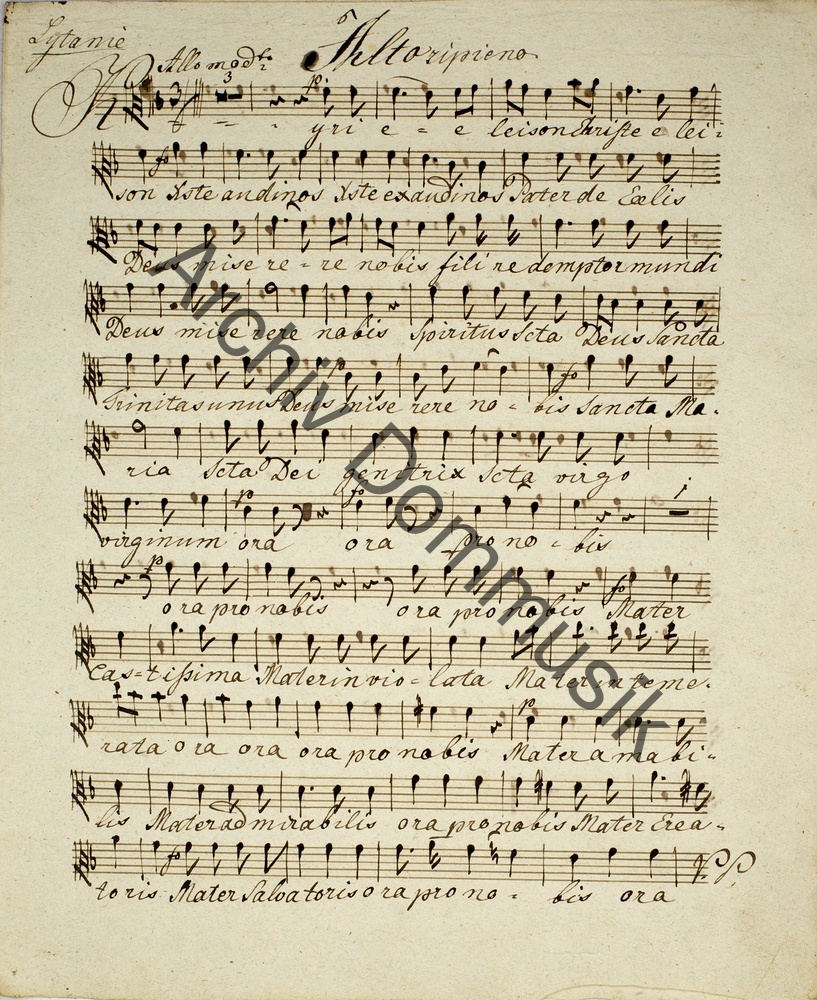 Lytanie
Alto ripieno
Allo modto
3
p
Kyri e - e leison Christe e lei-
fo
son Xste audi nos Xste exaudi nos Pater de Cœlis
Deus mise re - re nobis fili redemptor mundi
Deus mise rere nobis Spiritus Scta Deus Sancta
p fo
Trinitas unus Deus mise rere no - bis Sancta Ma-
ria Scta Dei genitrix Scta virgo
p fo 1
virginum ora ora pro no - bis
p fo
ora pro nobis ora pro nobis Mater
Cas-tissima Mater in vio-lata Mater inteme-
p
rata ora ora ora pro nobis Mater amabi-
lis Mater admirabilis ora pro nobis Mater Crea-
fo
toris Mater Salvatoris ora pro no - bis ora
Archiv Dommusik